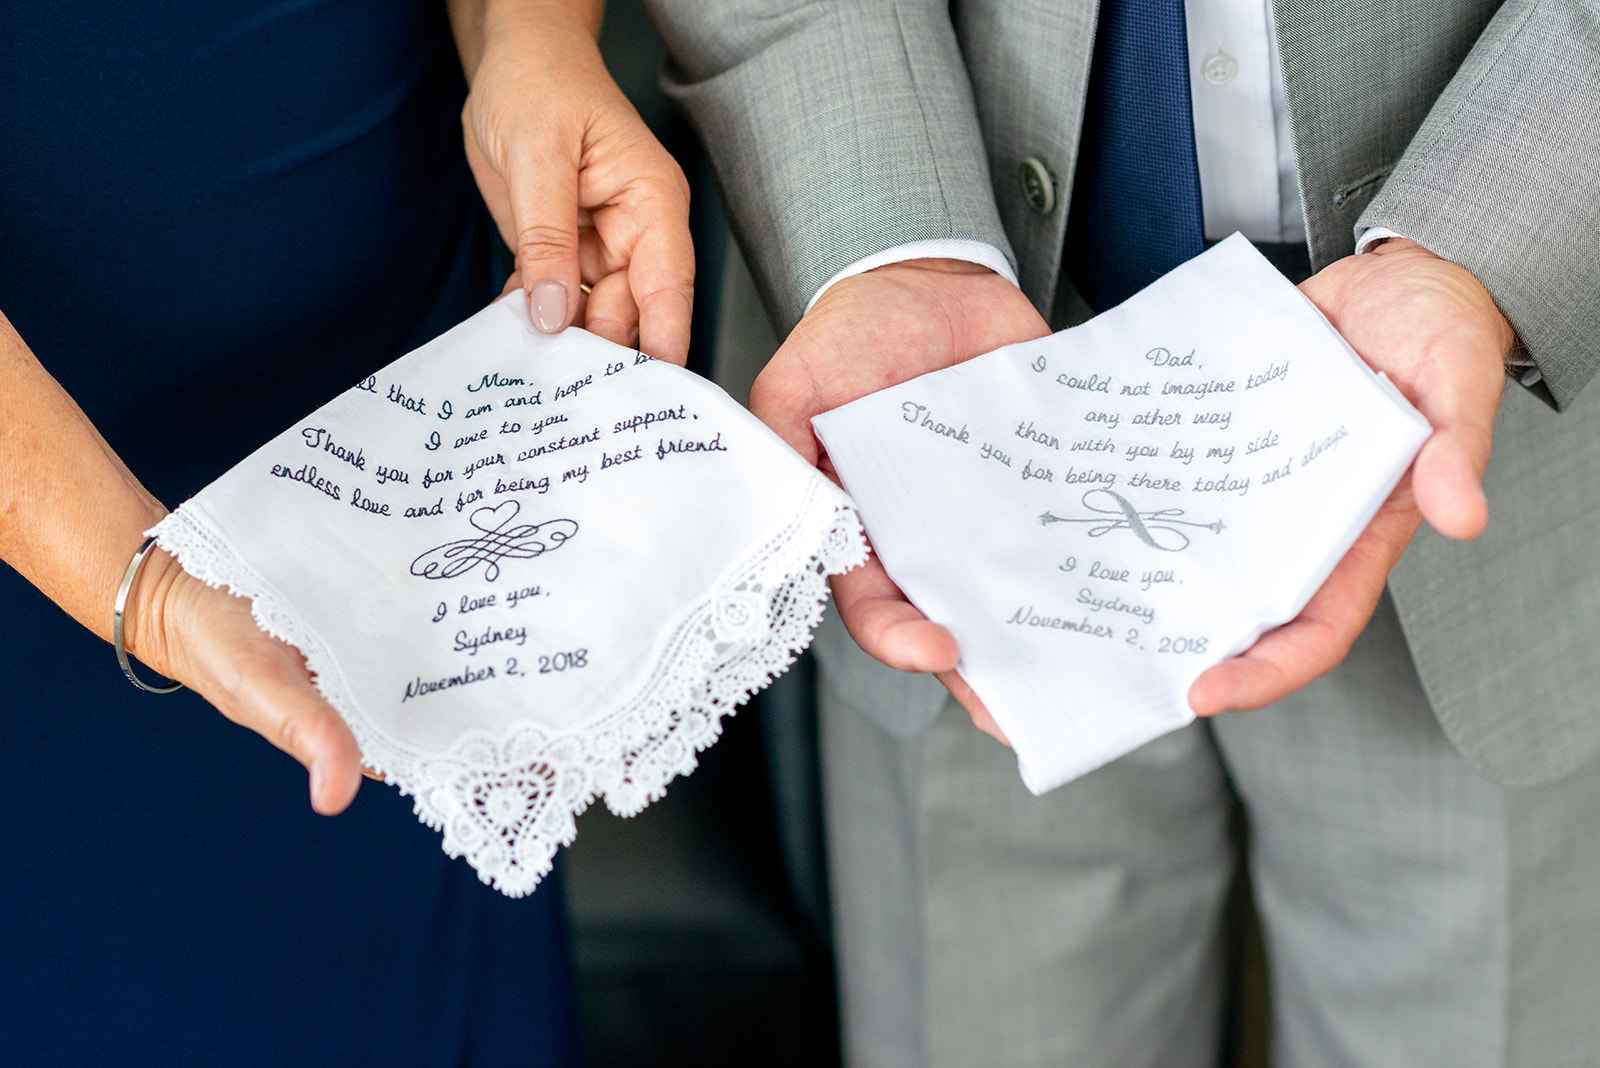 Mom,
all that I am and hope to be
I owe to you.
Thank you for your constant support,
endless love and for being my best friend.
I love you,
Sydney
November 2, 2018
Dad,
I could not imagine today
any other way
than with you by my side
Thank you for being there today and always
I love you,
Sydney
November 2, 2018